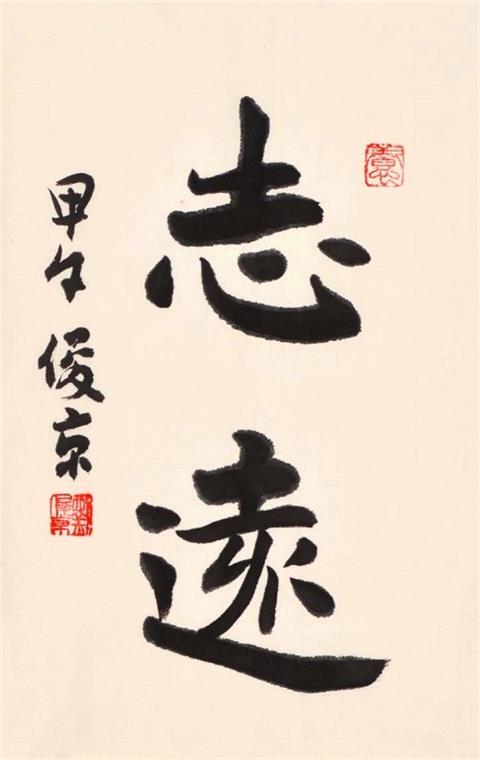 志遠
甲午 俊京